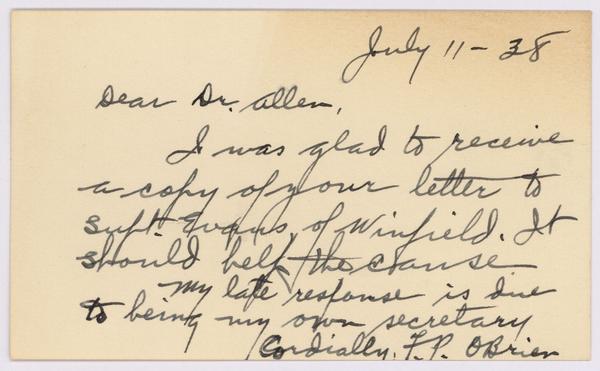 July 11 - 38
Dear Dr. Allen,
I was glad to receive
a copy of your letter to
Supt. Evans, of Winfield. It
should help the cause
My late response is due
to being my own secretary
Cordially, F.P. OBrien